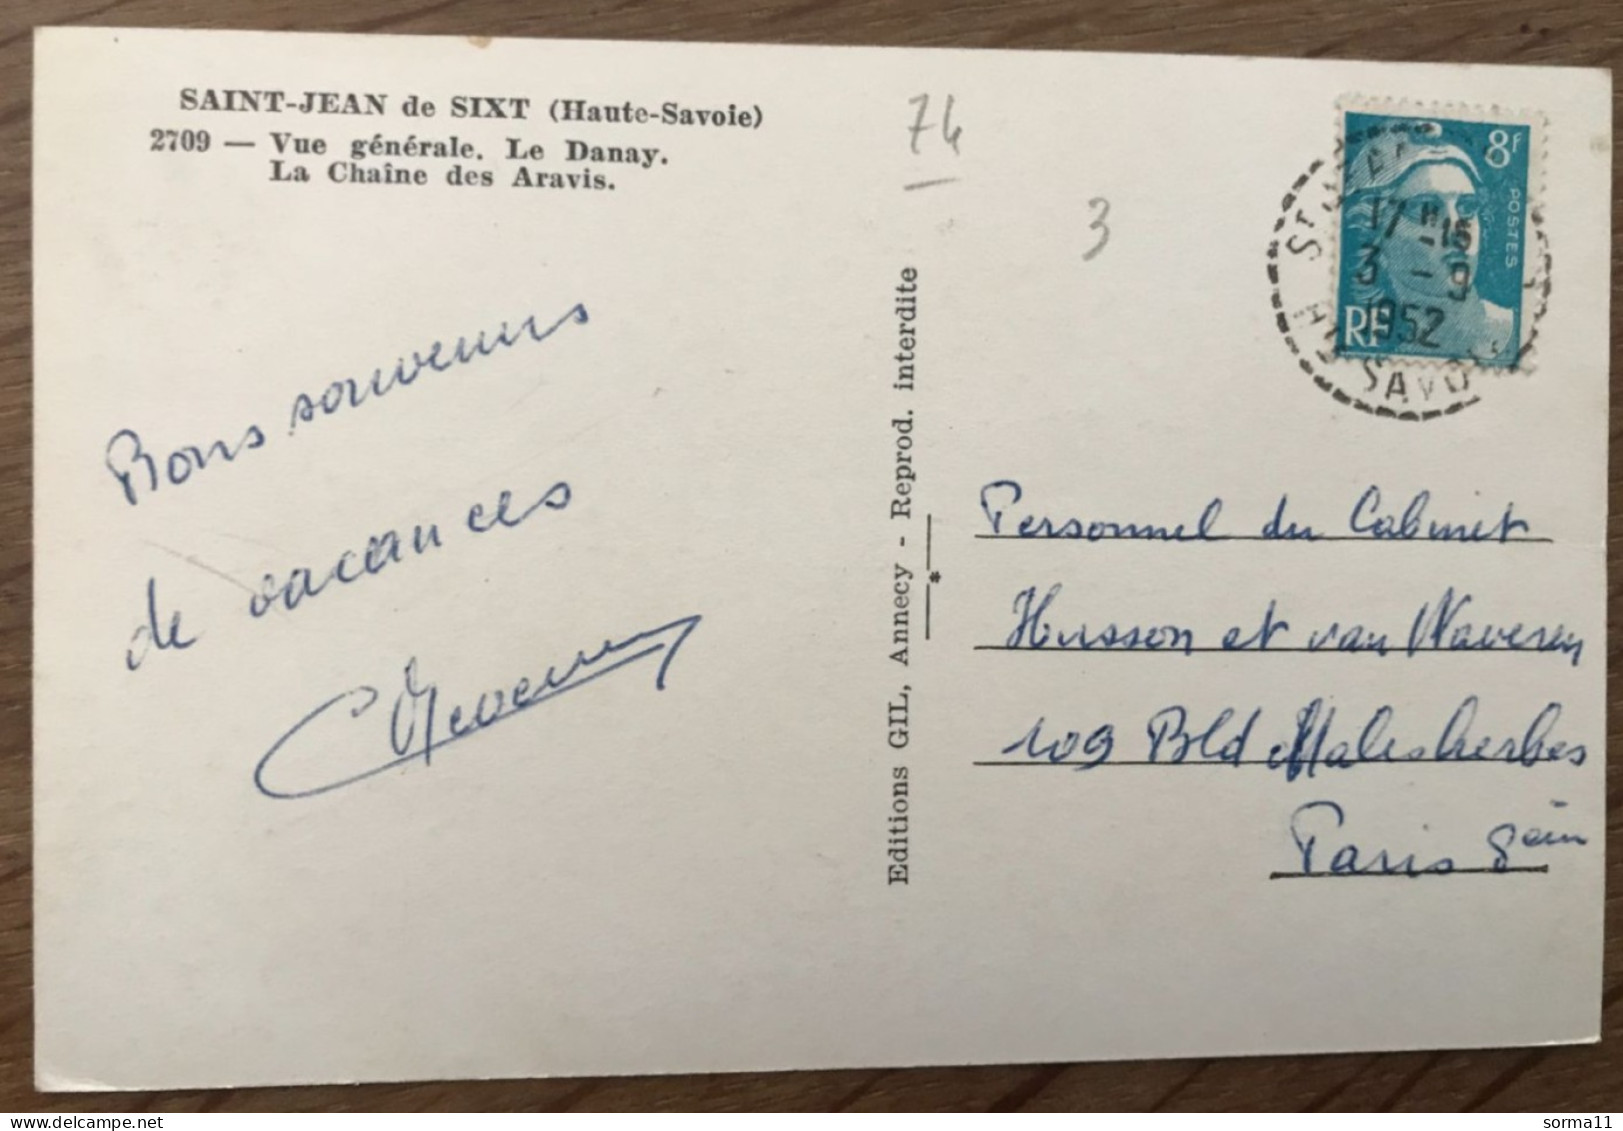 SAINT-JEAN de SIXT (Haute-Savoie)
2709 — Vue générale. Le Danay.
La Chaîne des Aravis.
74
3
8f
POSTES
RF
17 H 15
3 - 9
1952
SAVOIE
Bons souvenirs
de vacances
Editions GIL, Annecy - Reprod. interdite
Personnel du Cabinet
Husson et van Waveren
109 Bld Malesherbes
Paris 8ème
sorma11